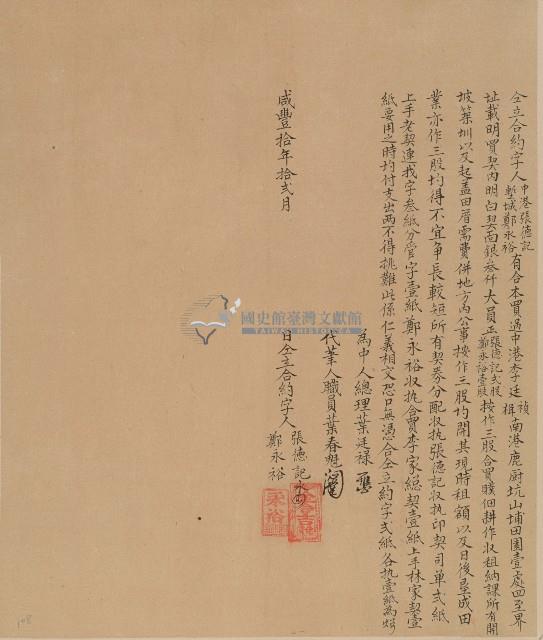 仝立合約字人中港張德記塹城鄭永裕有合本買過中港李廷禎楫南港鹿廚坑山埔田園壹處四至界
址載明買契內明白契面銀叁仟大員正張德記弍股鄭永裕壹股按作三股合買贌佃耕作收租納課所有開
坡築圳以及起盖田厝需費併地方內公事按作三股均開其現時租額以及日後墾成田
業亦作三股均得不宜爭長較短所有契券分配收执張德記收执印契司单弍紙
上手老契連找字叁紙分管字壹紙鄭永裕收执合買李家總契壹紙上手林家契壹
紙要用之時均付支出两不得挑難此係仁義相交恐口無憑合仝立約字弍紙各执壹紙為炤
為中人總理葉廷祿
代筆人職員葉春魁
咸豐拾年拾弍月
日仝立合約字人
張德記
鄭永裕
永裕
國史館臺灣文獻館
TAIWAN HISTORICA
108